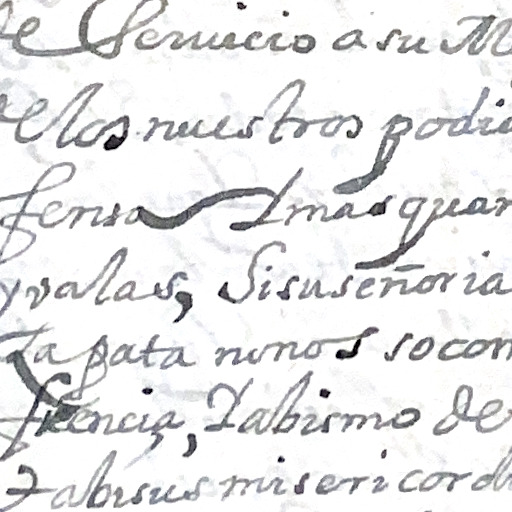 de Servicio a su M
de los nuestros podia
fensa Y mas quan
y valas, Si su señoria
Zapata no nos socorr
frencia, Y abismo de
Y a bisus misericordi